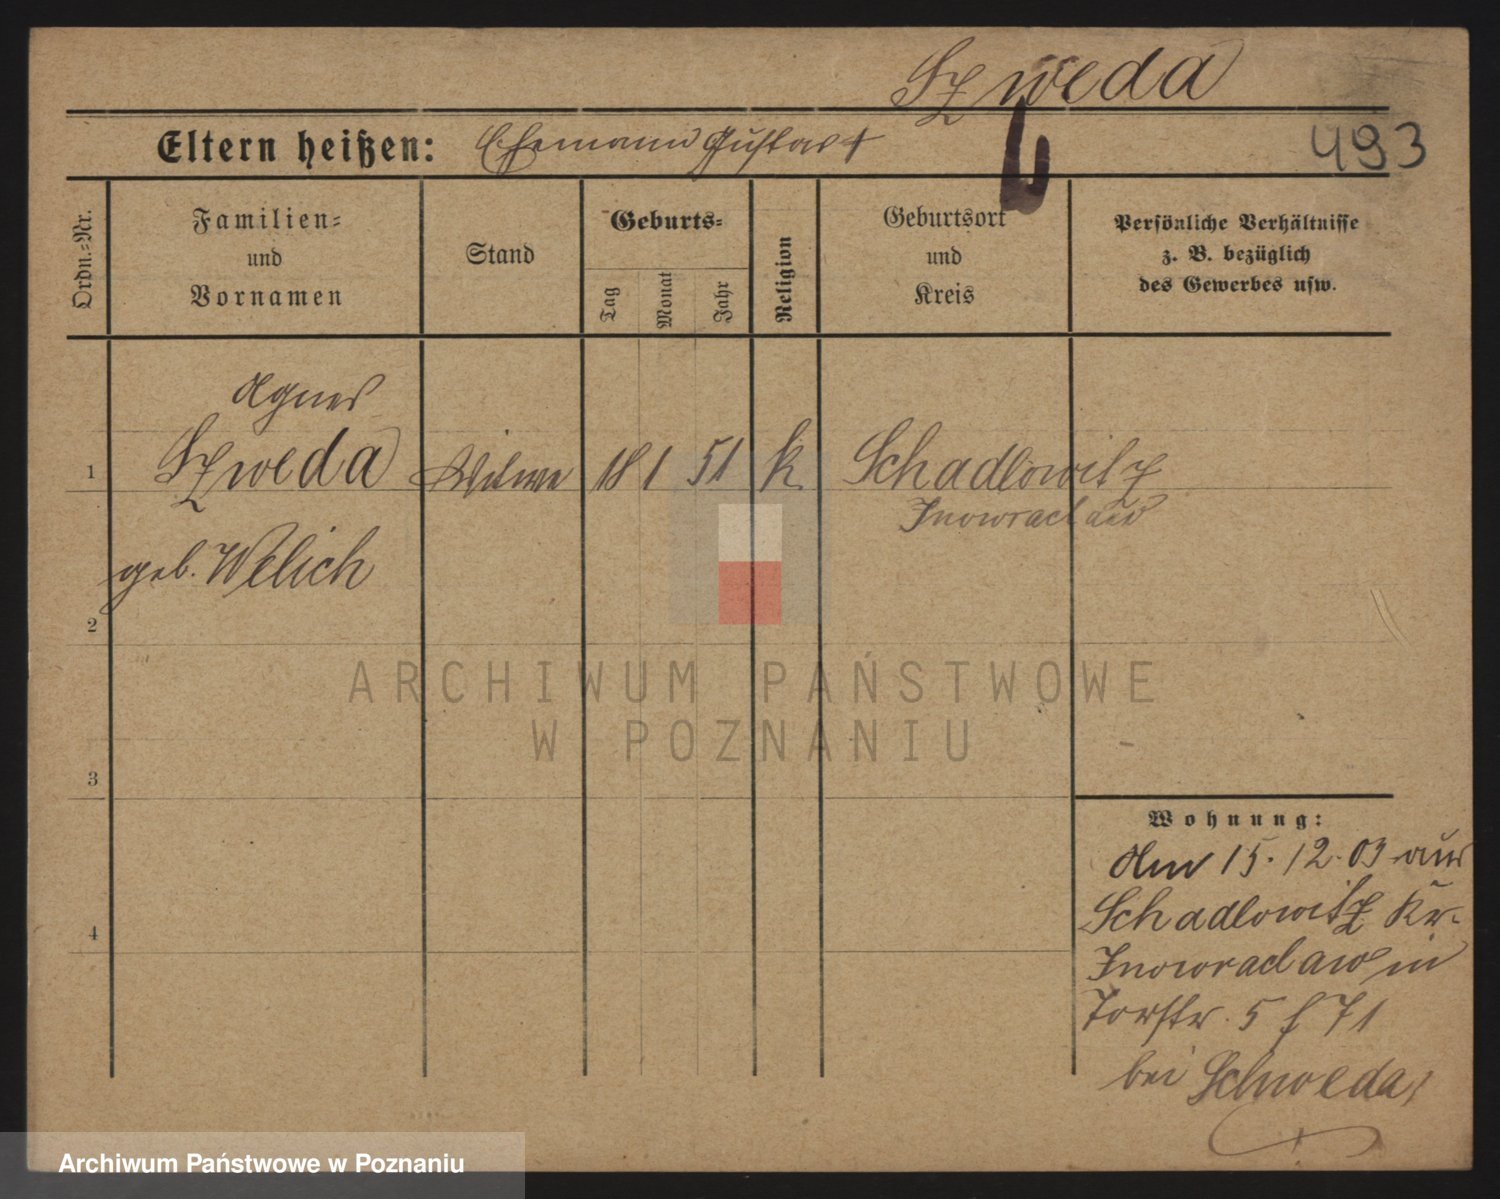 Szweda
Eltern heißen: Ehemann Gustav †
493
Ordn.-Nr.
Familien-
und
Vornamen
Stand
Geburts-
Tag
Monat
Jahr
Religion
Geburtsort
und
Kreis
Persönliche Verhältnisse
z. B. bezüglich
des Gewerbes usw.
Agnes
1 Szweda Witwe 18 1 51 k Schadlowitz
Inowraclaw
geb. Welich
2
ARCHIWUM PAŃSTWOWE
W POZNANIU
3
Wohnung:
Am 15.12.03 aus
Schadlowitz Kr.
4
Inowraclaw in
Torstr. 5 f 71
bei Schweda
Archiwum Państwowe w Poznaniu